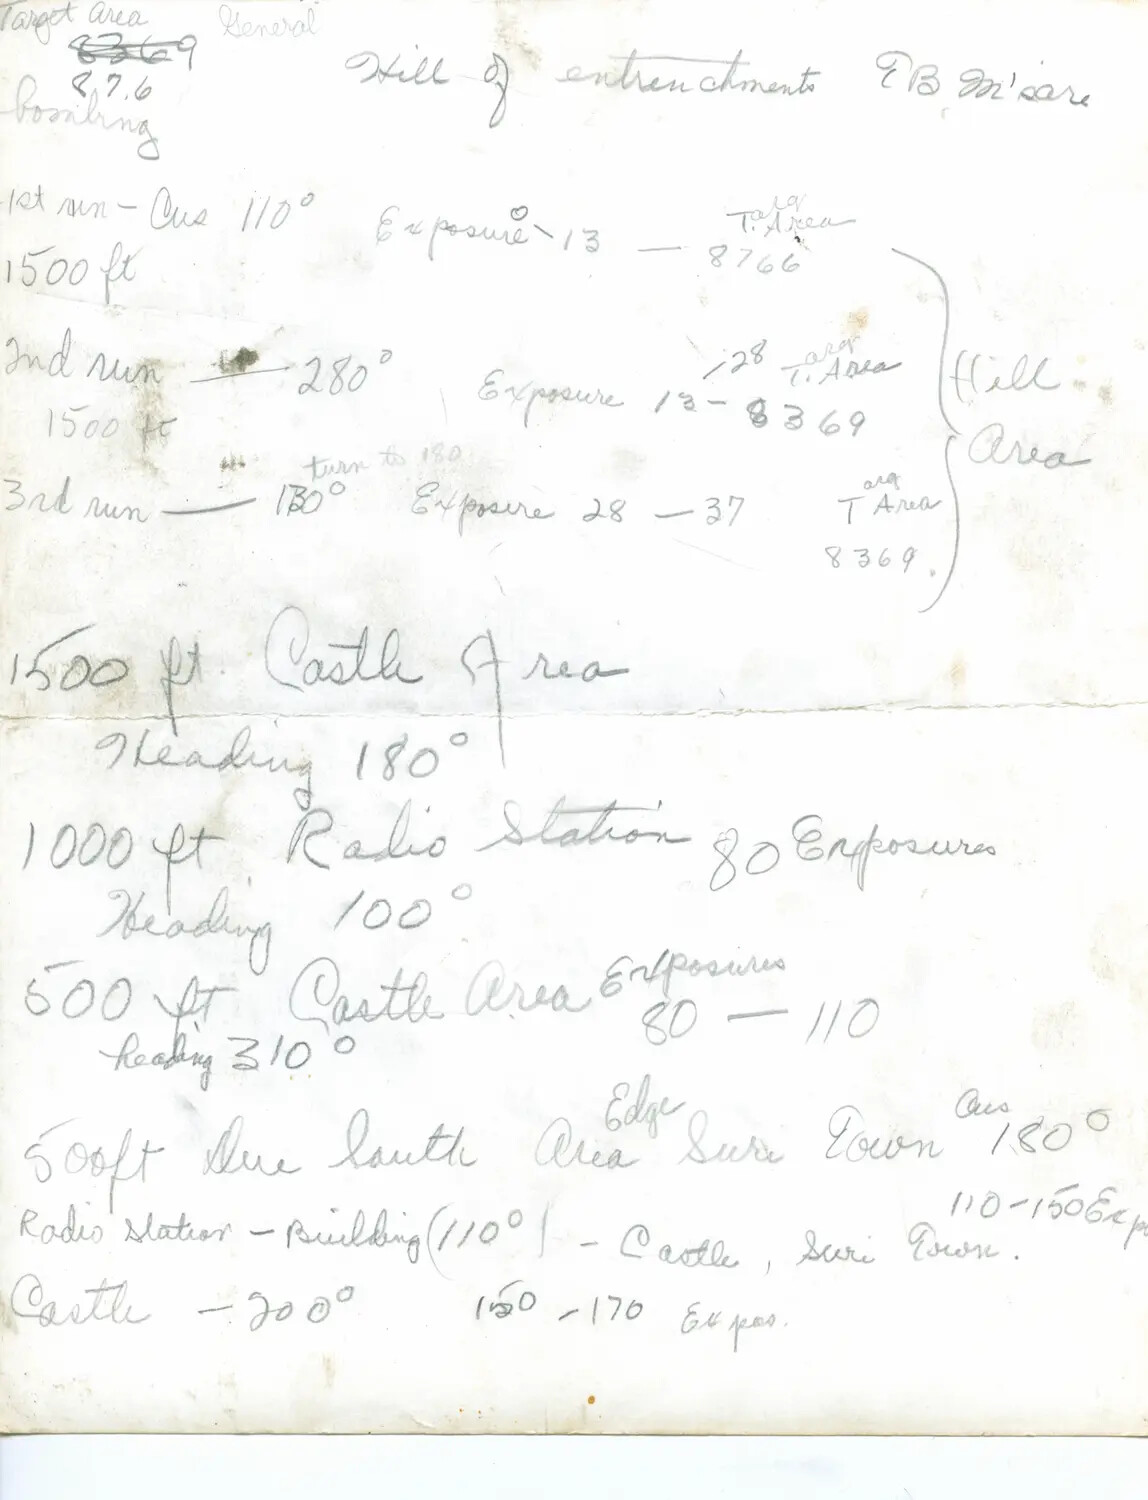 Target Area General
8369
87.6
bombing
Hill of entrenchments TB M'sare
1st run - Cus 110° Exposure 0-13 — Targ T. Area
1500 ft 8766
2nd run — 280° Exposure 13-28 Targ T. Area
1500 ft 8369
Hill Area
turn to 180
3rd run — 130° Exposure 28 — 37 Targ T Area
8369.
1500 ft. Castle Area
Heading 180°
1000 ft Radio Station 80 Exposures
Heading 100°
500 ft Castle Area Exposures
80 — 110
heading 310°
500ft Due South Area Edge Suri Town Cus 180°
110-150 Expo
Radio Station - Building (110°) - Castle, Suri Town.
Castle - 200° 150 - 170 Expos.